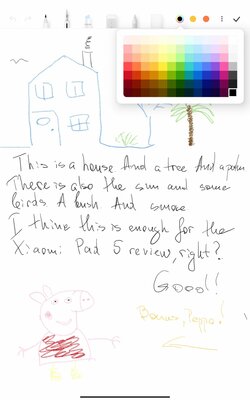 This is a house And a tree And a palm
There is also the sun and some
birds A bush And smoke
I think this is enough for the
Xiaomi Pad 5 review, right?
Good!
Peppa!